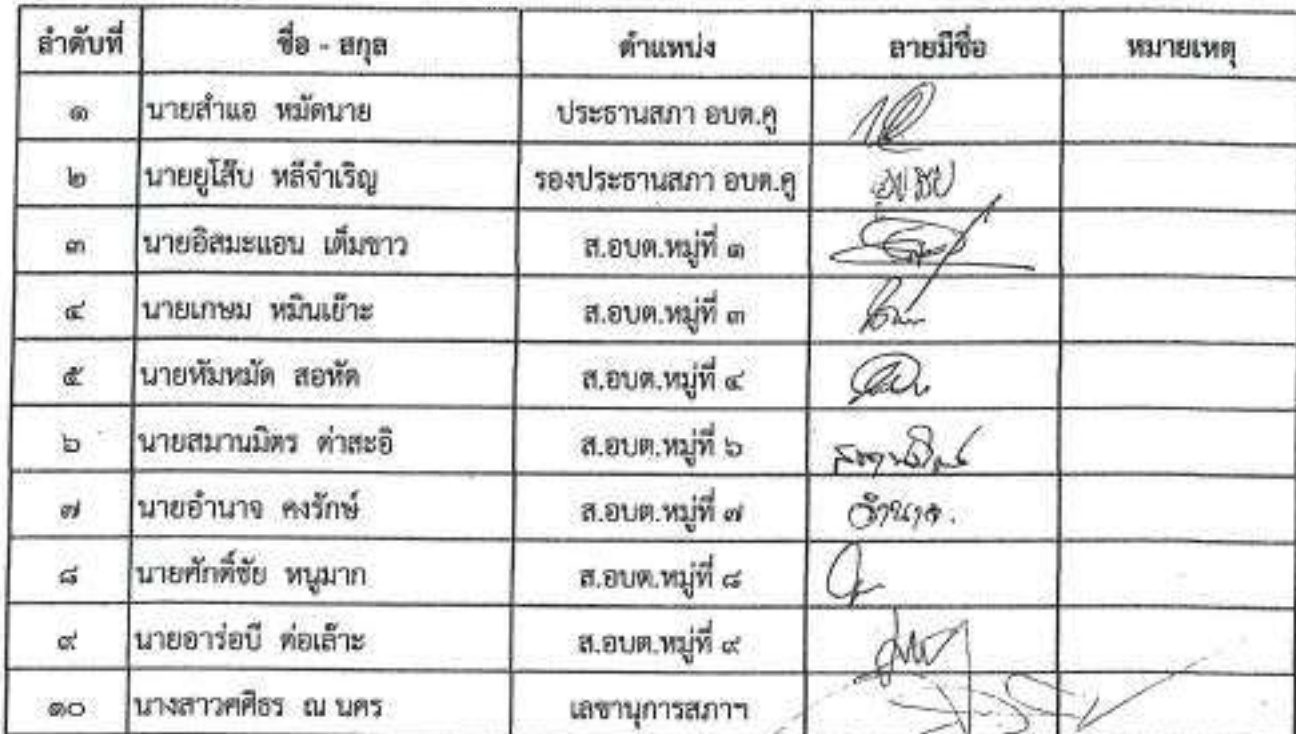 ลำดับที่ ชื่อ - สกุล ตำแหน่ง ลายมือชื่อ หมายเหตุ
๑ นายสำแอ หมัดนาย ประธานสภา อบต.คู
๒ นายยูโส๊บ หลีจำเริญ รองประธานสภา อบต.คู
๓ นายอิสมะแอน เต็มขาว ส.อบต.หมู่ที่ ๑
๔ นายเกษม หมินเย๊าะ ส.อบต.หมู่ที่ ๓
๕ นายหัมหมัด สอหัด ส.อบต.หมู่ที่ ๔
๖ นายสมานมิตร ต่าสะอิ ส.อบต.หมู่ที่ ๖
๗ นายอำนาจ คงรักษ์ ส.อบต.หมู่ที่ ๗ อำนาจ.
๘ นายศักดิ์ชัย หนูมาก ส.อบต.หมู่ที่ ๘
๙ นายอาร่อบี ต่อเล๊าะ ส.อบต.หมู่ที่ ๙
๑๐ นางสาวศศิธร ณ นคร เลขานุการสภาฯ